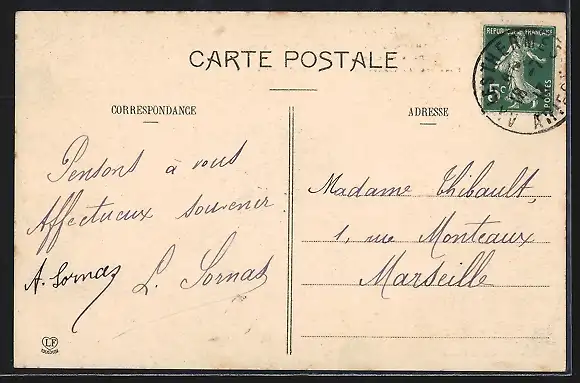 CARTE POSTALE
CORRESPONDANCE
ADRESSE
REPUBLIQUE FRANÇAISE
5c
POSTES
Pensons à vous
Affectueux souvenir
A. Sornas
L. Sornas
Madame Thibault,
1, rue Monteaux
Marseille
LF